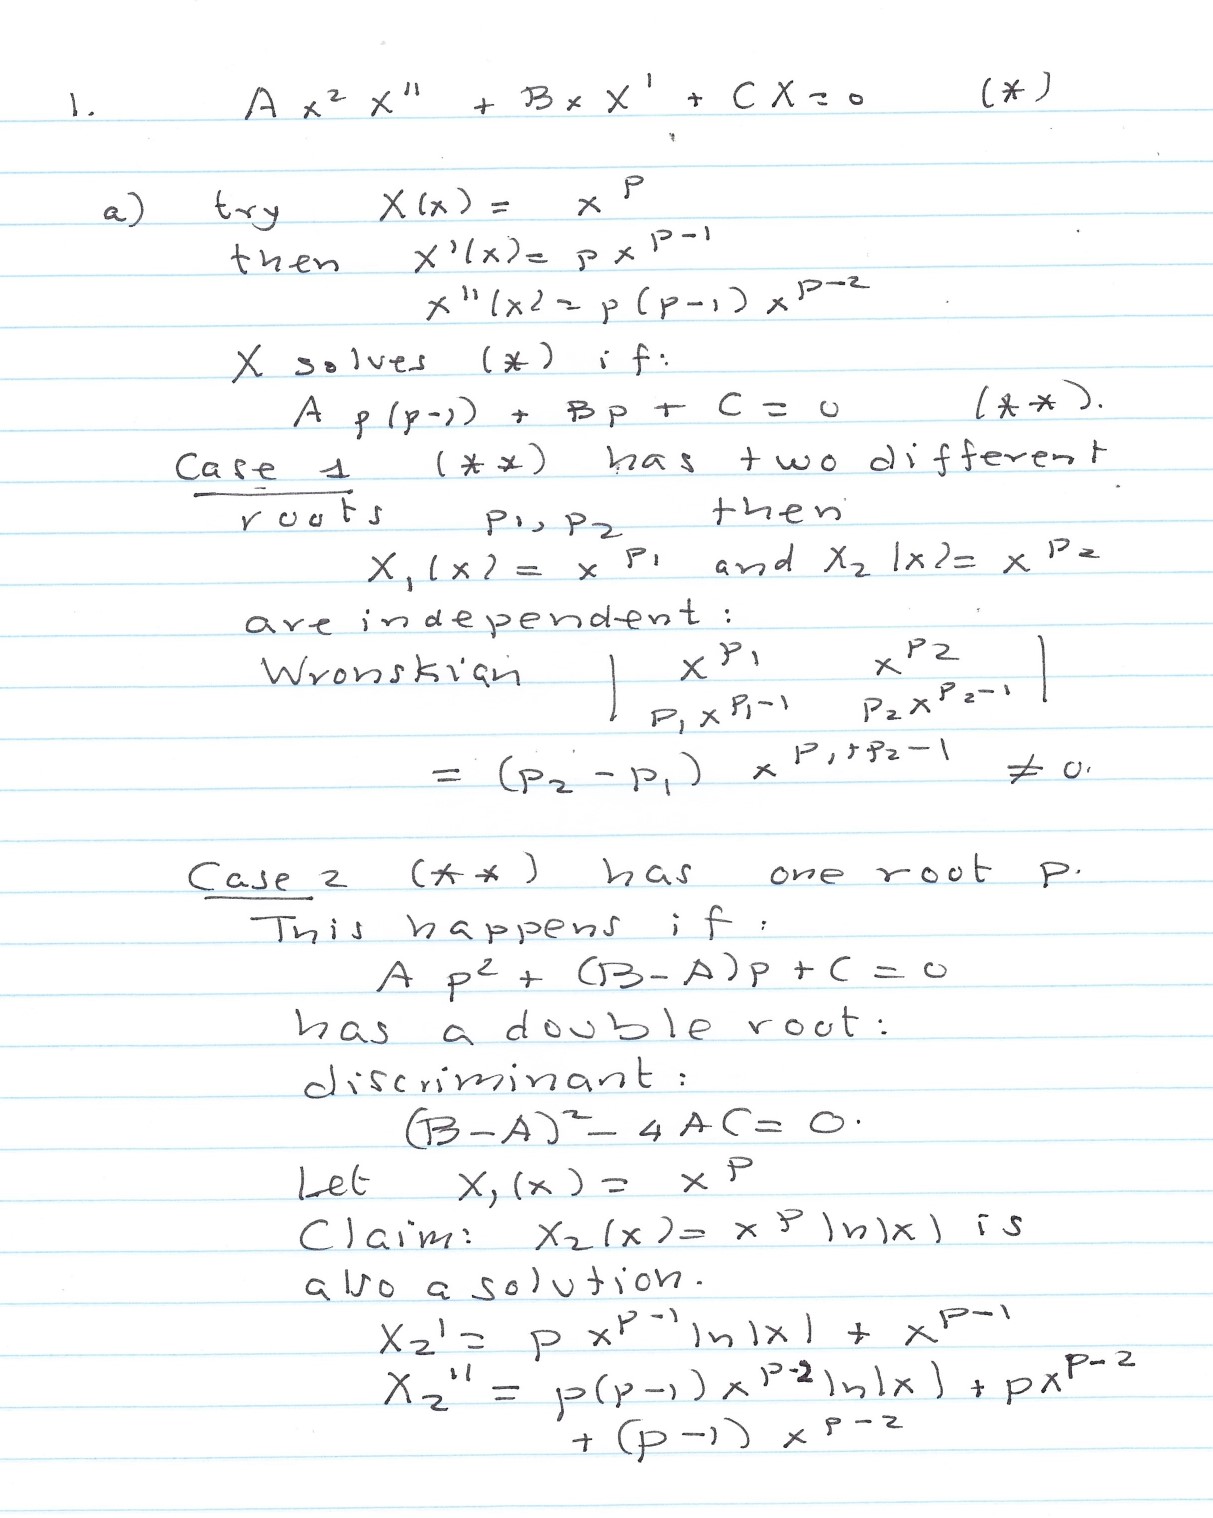 1. A x² X'' + B x X' + C X = 0 (*)
a) try X(x) = x^p
then X'(x) = p x^{p-1}
x''(x) = p(p-1) x^{p-2}
X solves (*) if:
A p(p-1) + Bp + C = 0 (**).
Case 1 (**) has two different
roots p₁, p₂ then
X₁(x) = x^{p₁} and X₂(x) = x^{p₂}
are independent:
Wronskian | x^{p₁} x^{p₂} |
| p₁ x^{p₁-1} p₂ x^{p₂-1} |
= (p₂ - p₁) x^{p₁+p₂-1} ≠ 0.
Case 2 (**) has one root p.
This happens if:
A p² + (B-A)p + C = 0
has a double root:
discriminant:
(B-A)² - 4AC = 0.
Let X₁(x) = x^p
Claim: X₂(x) = x^p ln|x| is
also a solution.
X₂' = p x^{p-1} ln|x| + x^{p-1}
X₂'' = p(p-1) x^{p-2} ln|x| + p x^{p-2}
+ (p-1) x^{p-2}